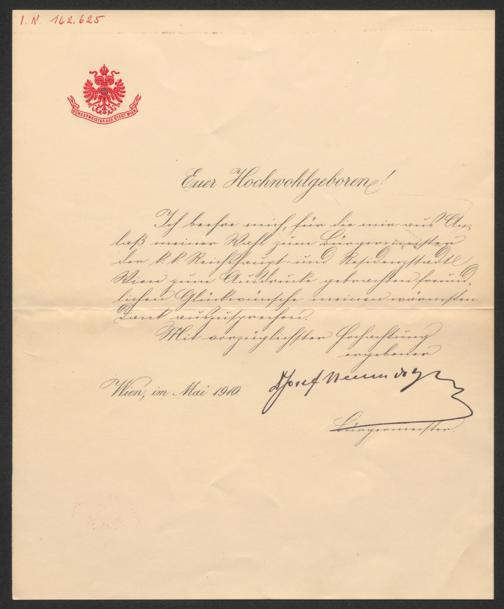 I. N. 162.625
BÜRGERMEISTER DER STADT WIEN
Euer Hochwohlgeboren!
Ich beehre mich, für die mir aus An-
laß meiner Wahl zum Bürgermeister
der k. k. Reichshaupt und Residenzstadt
Wien zum Ausdrucke gebrachten freund-
lichen Glückwünsche meinen wärmsten
Dank auszusprechen.
Mit vorzüglichster Hochachtung
ergebener
Wien, im Mai 1910. Dr Josef Neumayer
Bürgermeister.